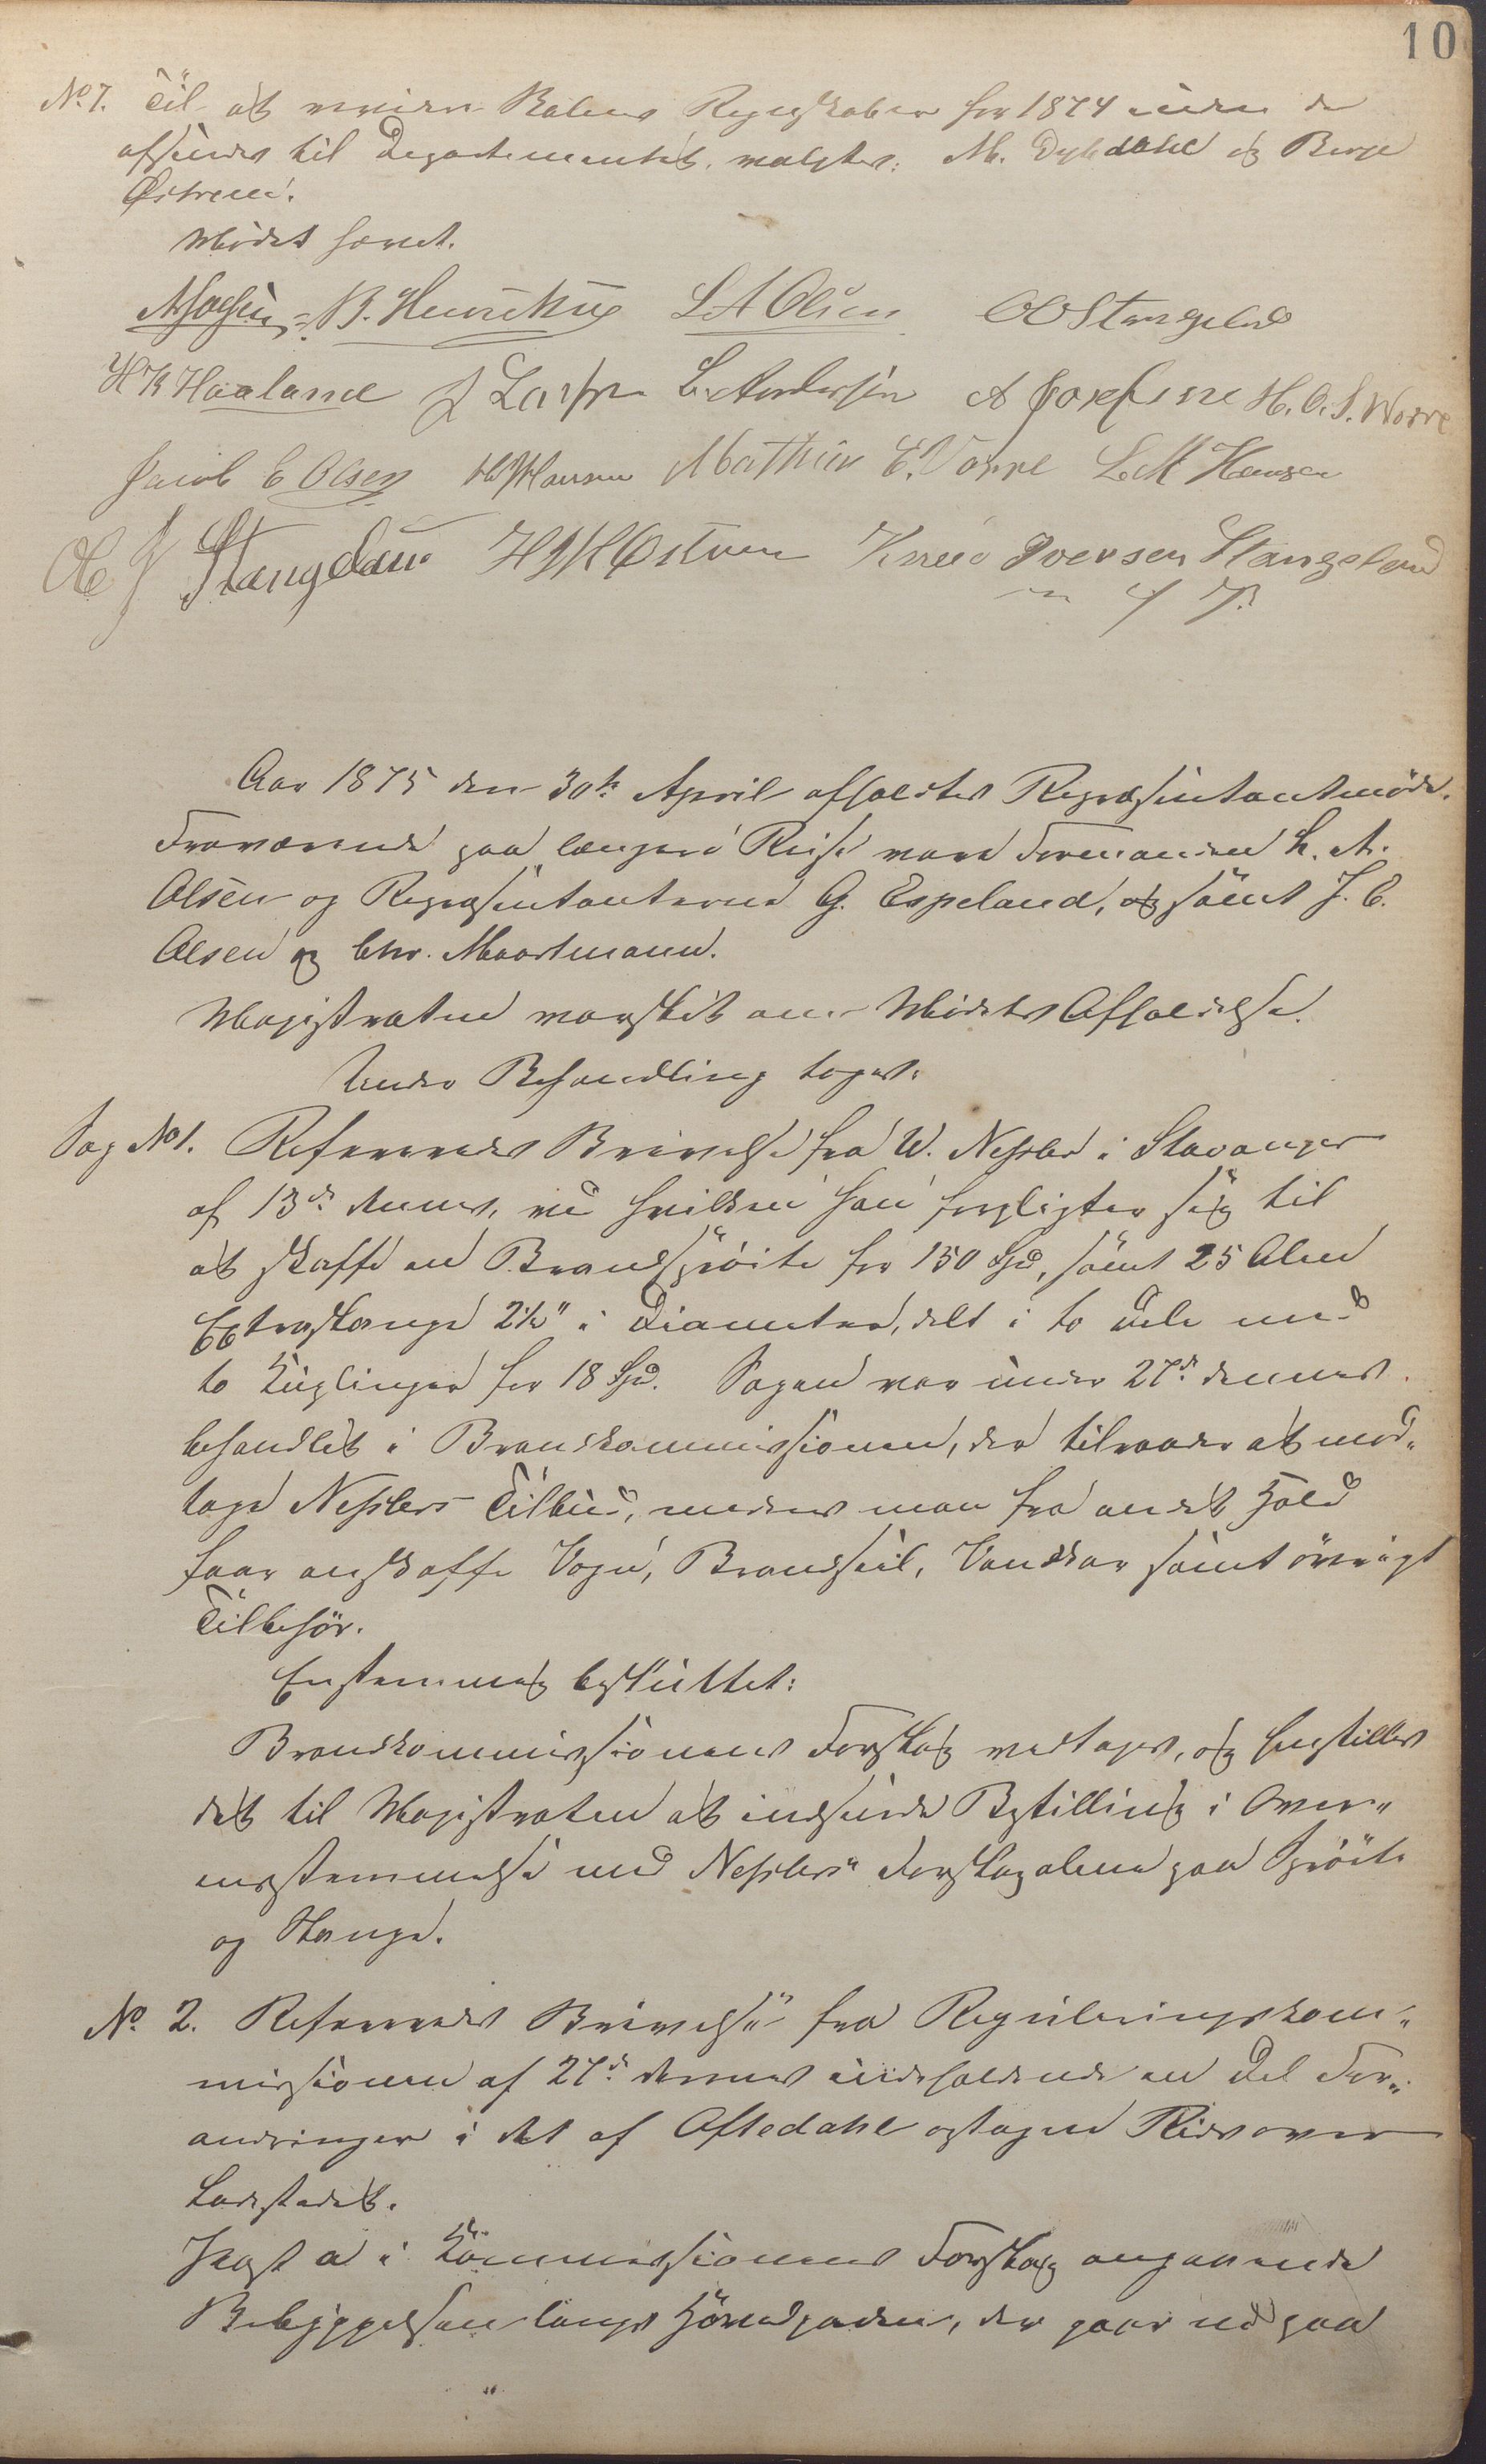 10
No 7. Til at revidere Byens Regnskaber for 1874 inden de
afsendes til Departementet valgtes: M. Dybdahl og Berge
Østrem.
Mødet hævet.
B. Henriksen L A Olsen O O Stangeland
H K Haaland J Larsen L. Andersen A Josefsen H. O. S. Vorre
Jacob E Olsen Mathias E. Vorre L. M Hansen
O J Stangeland H J M Østrem Iversen Stangeland
Aar 1875 den 30te April afholdtes Repræsentantmøde.
Fraværende paa længere Reise vare Formanden L. A.
Olsen og Repræsentanterne G. Espeland, og samt J. E.
Olsen og Chr. Maartmann.
Magistraten varslet om Mødets Afholdelse.
Under Behandling toges:
Sag No 1. Refereredes Skrivelse fra W. Nessler i Stavanger
af 13de dennes, ved hvilken han forpligter sig til
at skaffe en Brandsprøite for 150 Spd, samt 25 Alen
Extraslange 2½" i Diameter, delt i to Dele med
to Kuplinger for 18 Spd. Sagen var under 27de dennes
behandlet i Brandkommissionen, der tilraader at mod„
tage Nesslers Tilbud, medens man fra andet Hold
faar anskaffe Vogn, Brandseil, Vandkar samt øvrigt
Tilbehør.
Enstemmig besluttet:
Brandkommissionens Forslag vedtages, og henstilles
det til Magistraten at indsende Bestilling i Over„
ensstemmelse med Nesslers Forslag alene paa Sprøite
og Slange.
No 2. Refereredes Skrivelse fra Reguleringskom„
missionen af 27de dennes indeholdende en Del For„
andringer i det af Aftedahl optagne Rids over
Ladestedet.
Post a i Kommissionens Forslag angaaende
Bebyggelsen langs Hovedgaden, der gaar ned paa